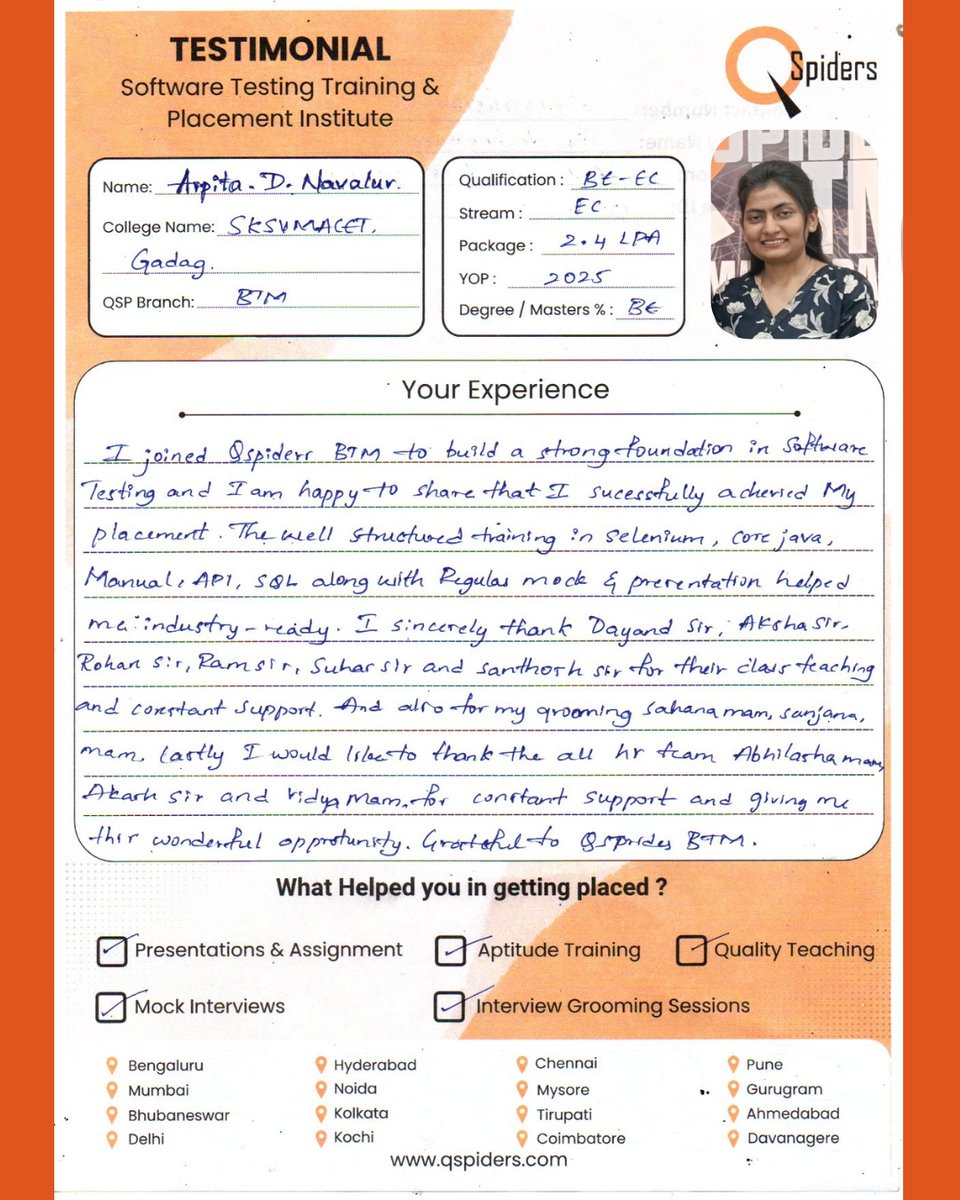 TESTIMONIAL
Software Testing Training &
Placement Institute
QSpiders
Name: Arpita. D. Navalur.
College Name: SKSVMACET,
Gadag.
QSP Branch: BTM
Qualification : BE-EC
Stream : EC
Package : 2.4 LPA
YOP : 2025
Degree / Masters % : BE
Your Experience
I joined Qspiders BTM to build a strong foundation in Software
Testing and I am happy to share that I sucessfully acheried My
placement. The well structured training in selenium, core java,
Manual, API, SQL along with Regular mock & presentation helped
me industry-ready. I sincerely thank Dayand sir, Aksha sir,
Rohan sir, Ram sir, Suhas sir and santhosh sir for their class teaching
and constant support. And also for my grooming Sahana mam, sanjana,
mam, lastly I would like to thank the all hr team Abhilasha mam,
Akash sir and vidya mam, for constant support and giving me
this wonderful opprotunity. Grateful to Qsprides BTM.
What Helped you in getting placed ?
Presentations & Assignment
Aptitude Training
Quality Teaching
Mock Interviews
Interview Grooming Sessions
Bengaluru
Mumbai
Bhubaneswar
Delhi
Hyderabad
Noida
Kolkata
Kochi
Chennai
Mysore
Tirupati
Coimbatore
Pune
Gurugram
Ahmedabad
Davanagere
www.qspiders.com